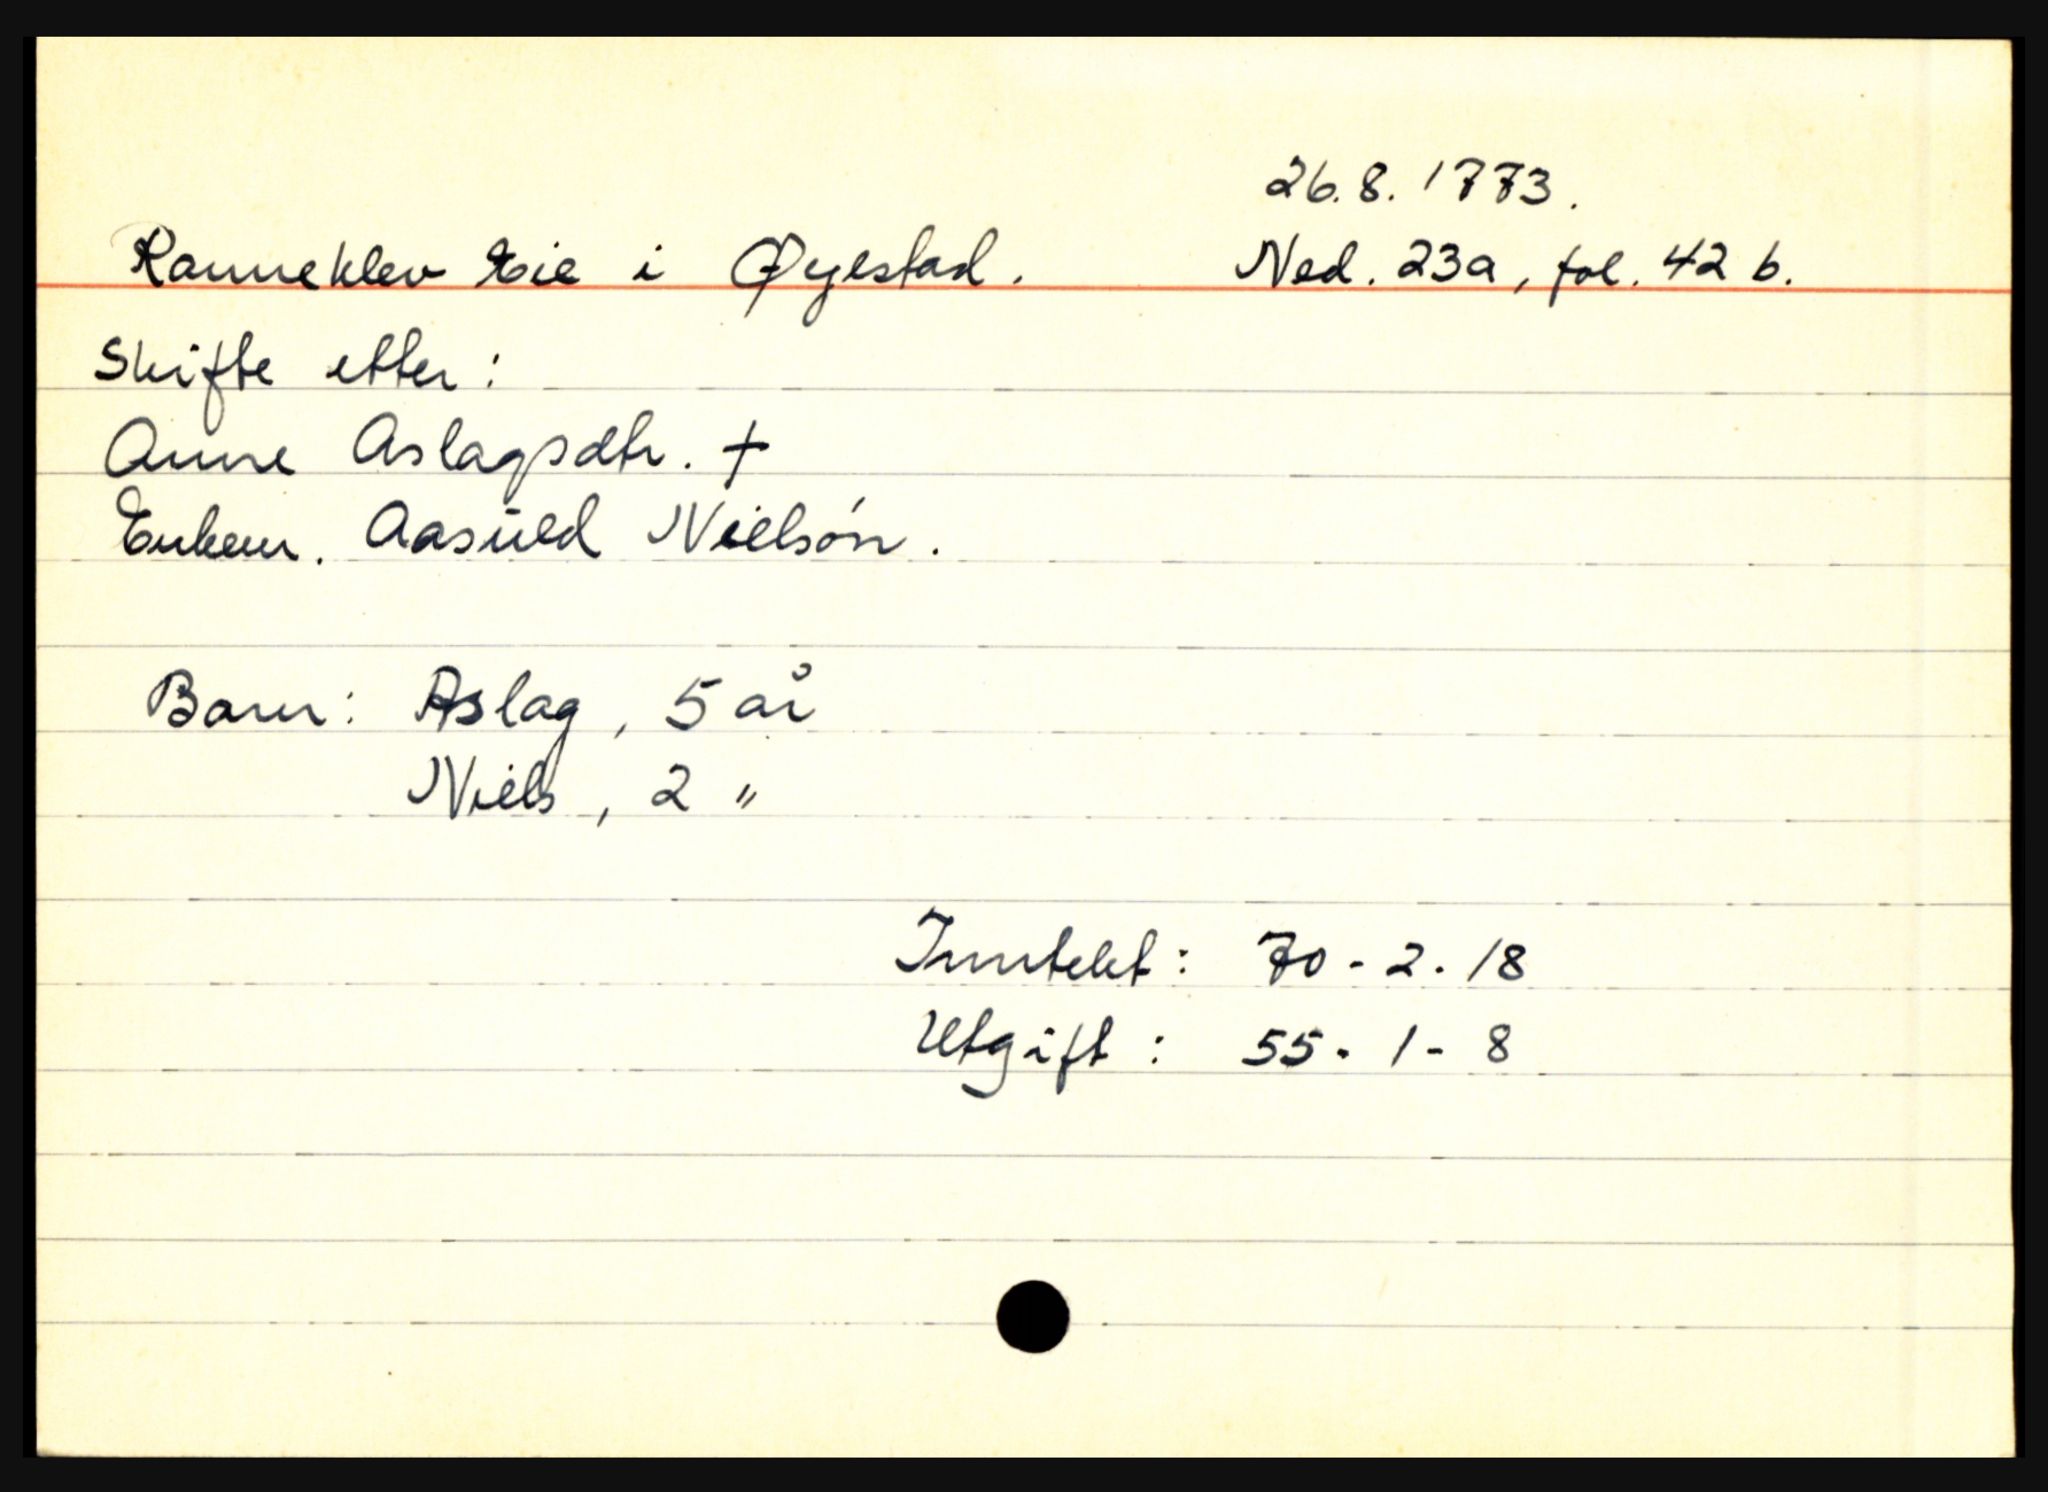 26.8.1773.
Ranneklev Eie i Øyestad. Ned. 23a, fol. 42 b.
Skifte etter:
Anne Aslagsdtr. †
Enkem. Aasuld Nielsøn.
Barn: Aslag, 5 år
Niels, 2 "
Inntekt: 70-2-18
Utgift: 55-1-8